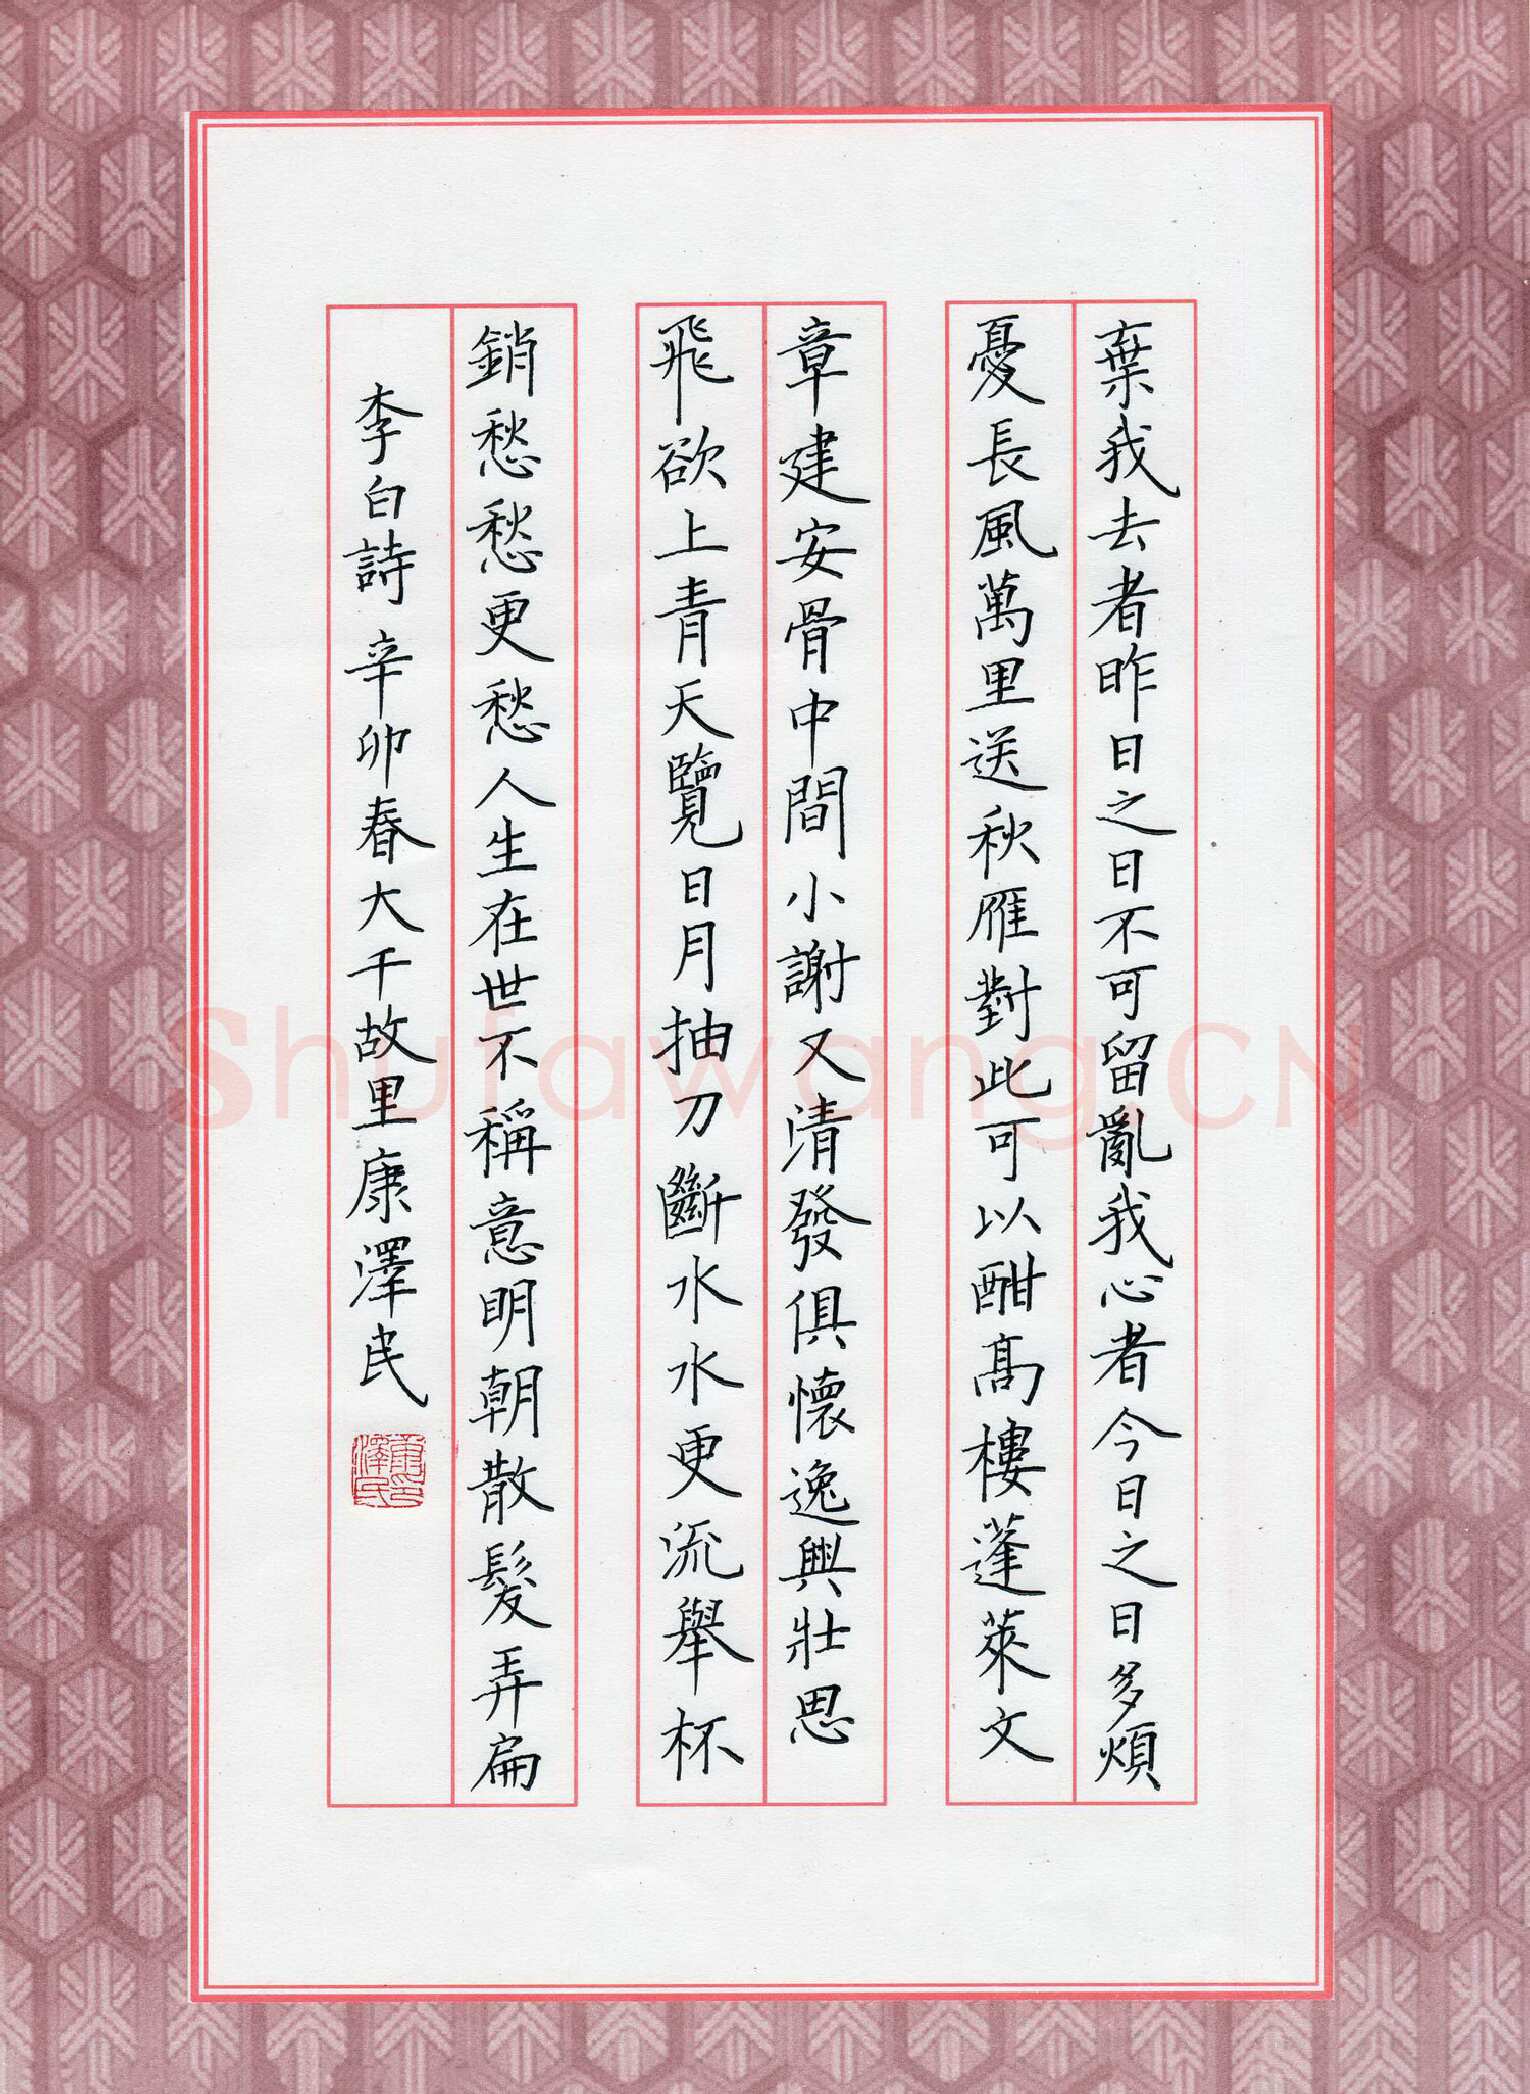 棄我去者昨日之日不可留亂我心者今日之日多煩
憂長風萬里送秋雁對此可以酣髙樓蓬萊文
章建安骨中間小謝又清發俱懷逸興壯思
飛欲上青天覽日月抽刀斷水水更流舉杯
銷愁愁更愁人生在世不稱意明朝散髮弄扁
李白詩 辛卯春大千故里康澤民
康印澤民
Shufawang.CN